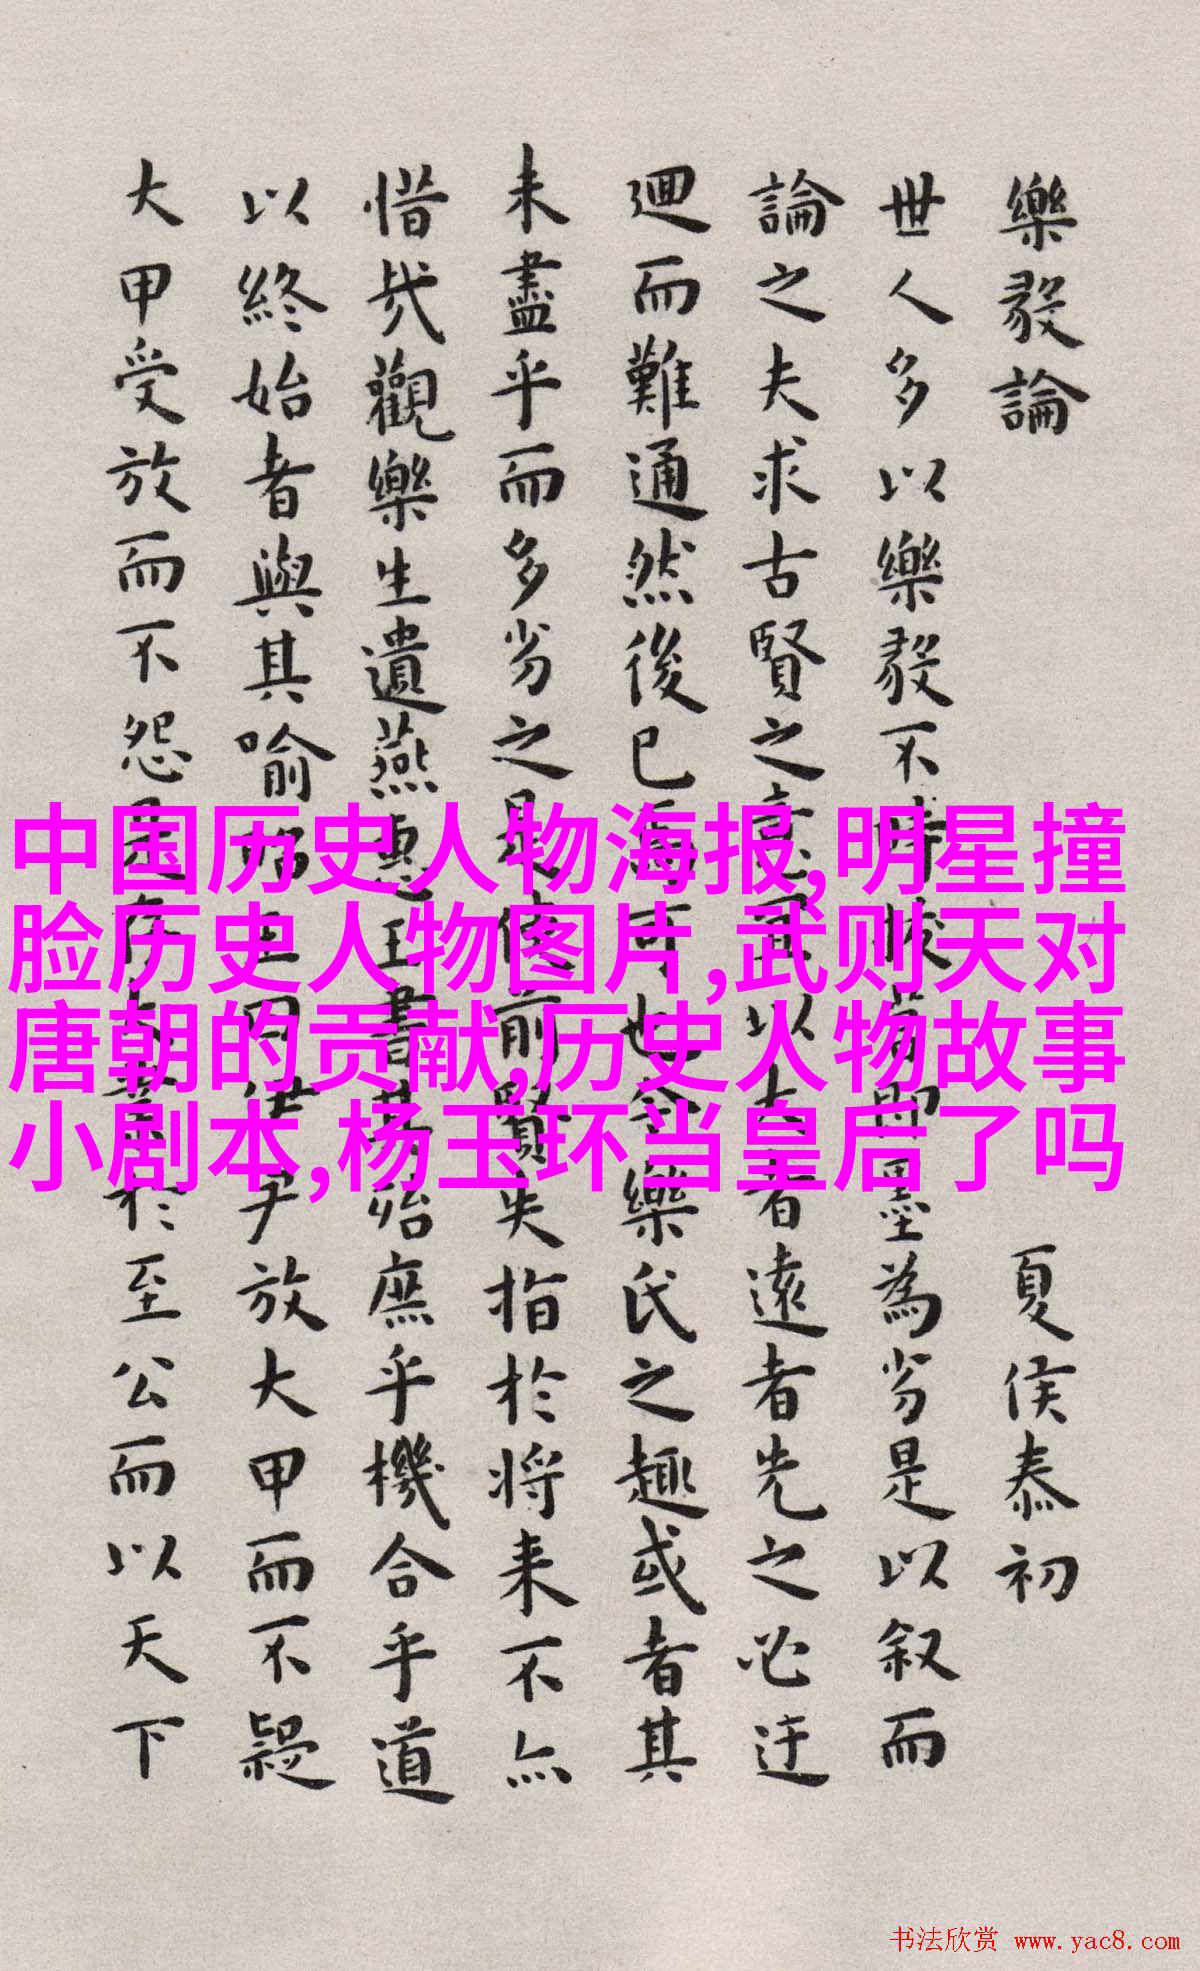 樂毅論 夏侯泰初
世人多以樂毅不時拔莒即墨為劣是以叙而
論之夫求古賢之意宜以大者遠者先之必迂
迴而難通然後已焉可也今樂氏之趣或者其
未盡乎而多劣之是使前賢失指於將来不亦
惜哉觀樂生遺燕惠王書其殆庶乎機合乎道
以終始者與其喻昭王曰伊尹放大甲而不疑
大甲受放而不怨是存大業於至公而以天下
中国历史人物海报,明星撞
脸历史人物图片,武则天对
唐朝的贡献,历史人物故事
小剧本,杨玉环当皇后了吗
书法欣赏 www.yac8.com